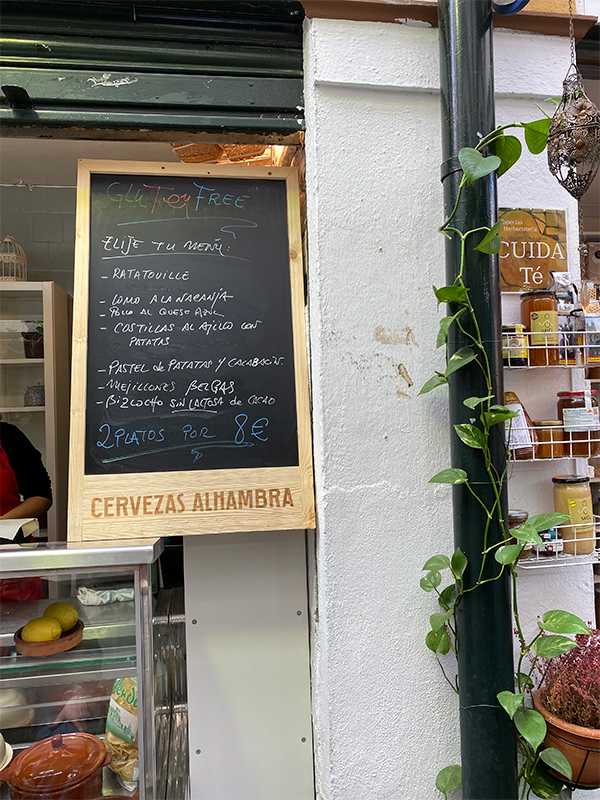 GluTen FREE
ELIJE TU MENU:
- RATATOUILLE
- LOMO A LA NARANJA
- POLLO AL QUESO AZUL
- COSTILLAS AL AJILLO CON
PATATAS
- PASTEL de PATATAS Y CALABACÍN.
- MEJILLONES BELGAS
- BIZCOCHO SIN LACTOSA de CACAO
2 PLATOS POR 8€
CERVEZAS ALHAMBRA
Especias
Herboristería
CUIDA
Té